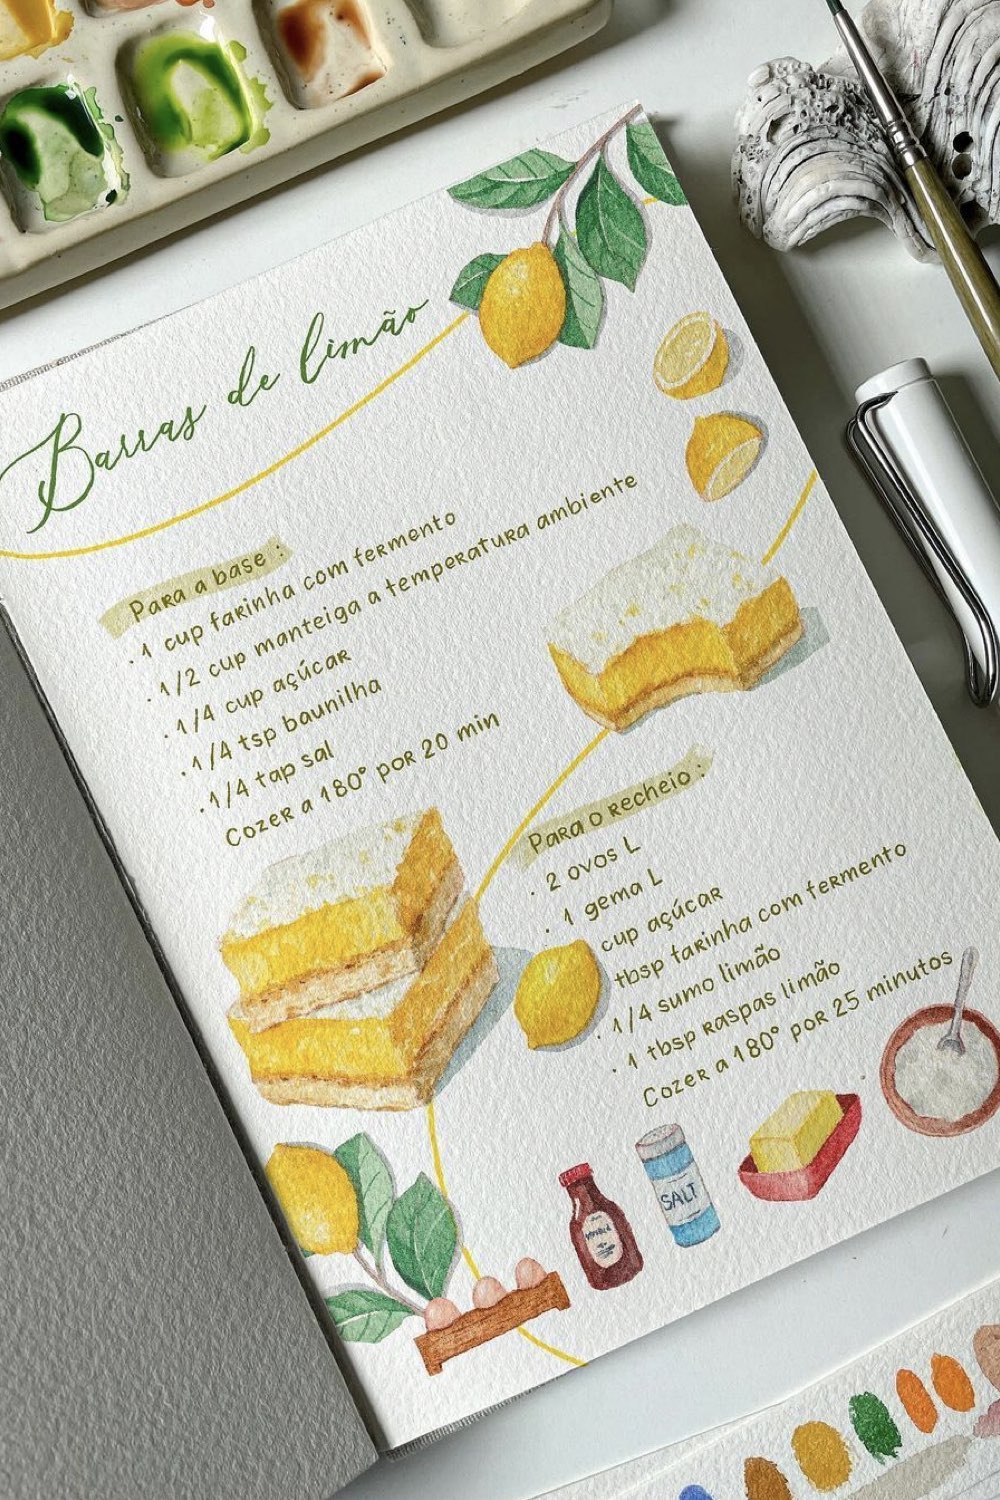 Barras de limão
Para a base :
. 1 cup farinha com fermento
. 1/2 cup manteiga a temperatura ambiente
. 1/4 cup açúcar
. 1/4 tsp baunilha
. 1/4 tap sal
Cozer a 180º por 20 min
Para o recheio :
. 2 ovos L
. 1 gema L
cup açúcar
tbsp farinha com fermento
. 1/4 sumo limão
. 1 tbsp raspas limão
Cozer a 180º por 25 minutos
SALT